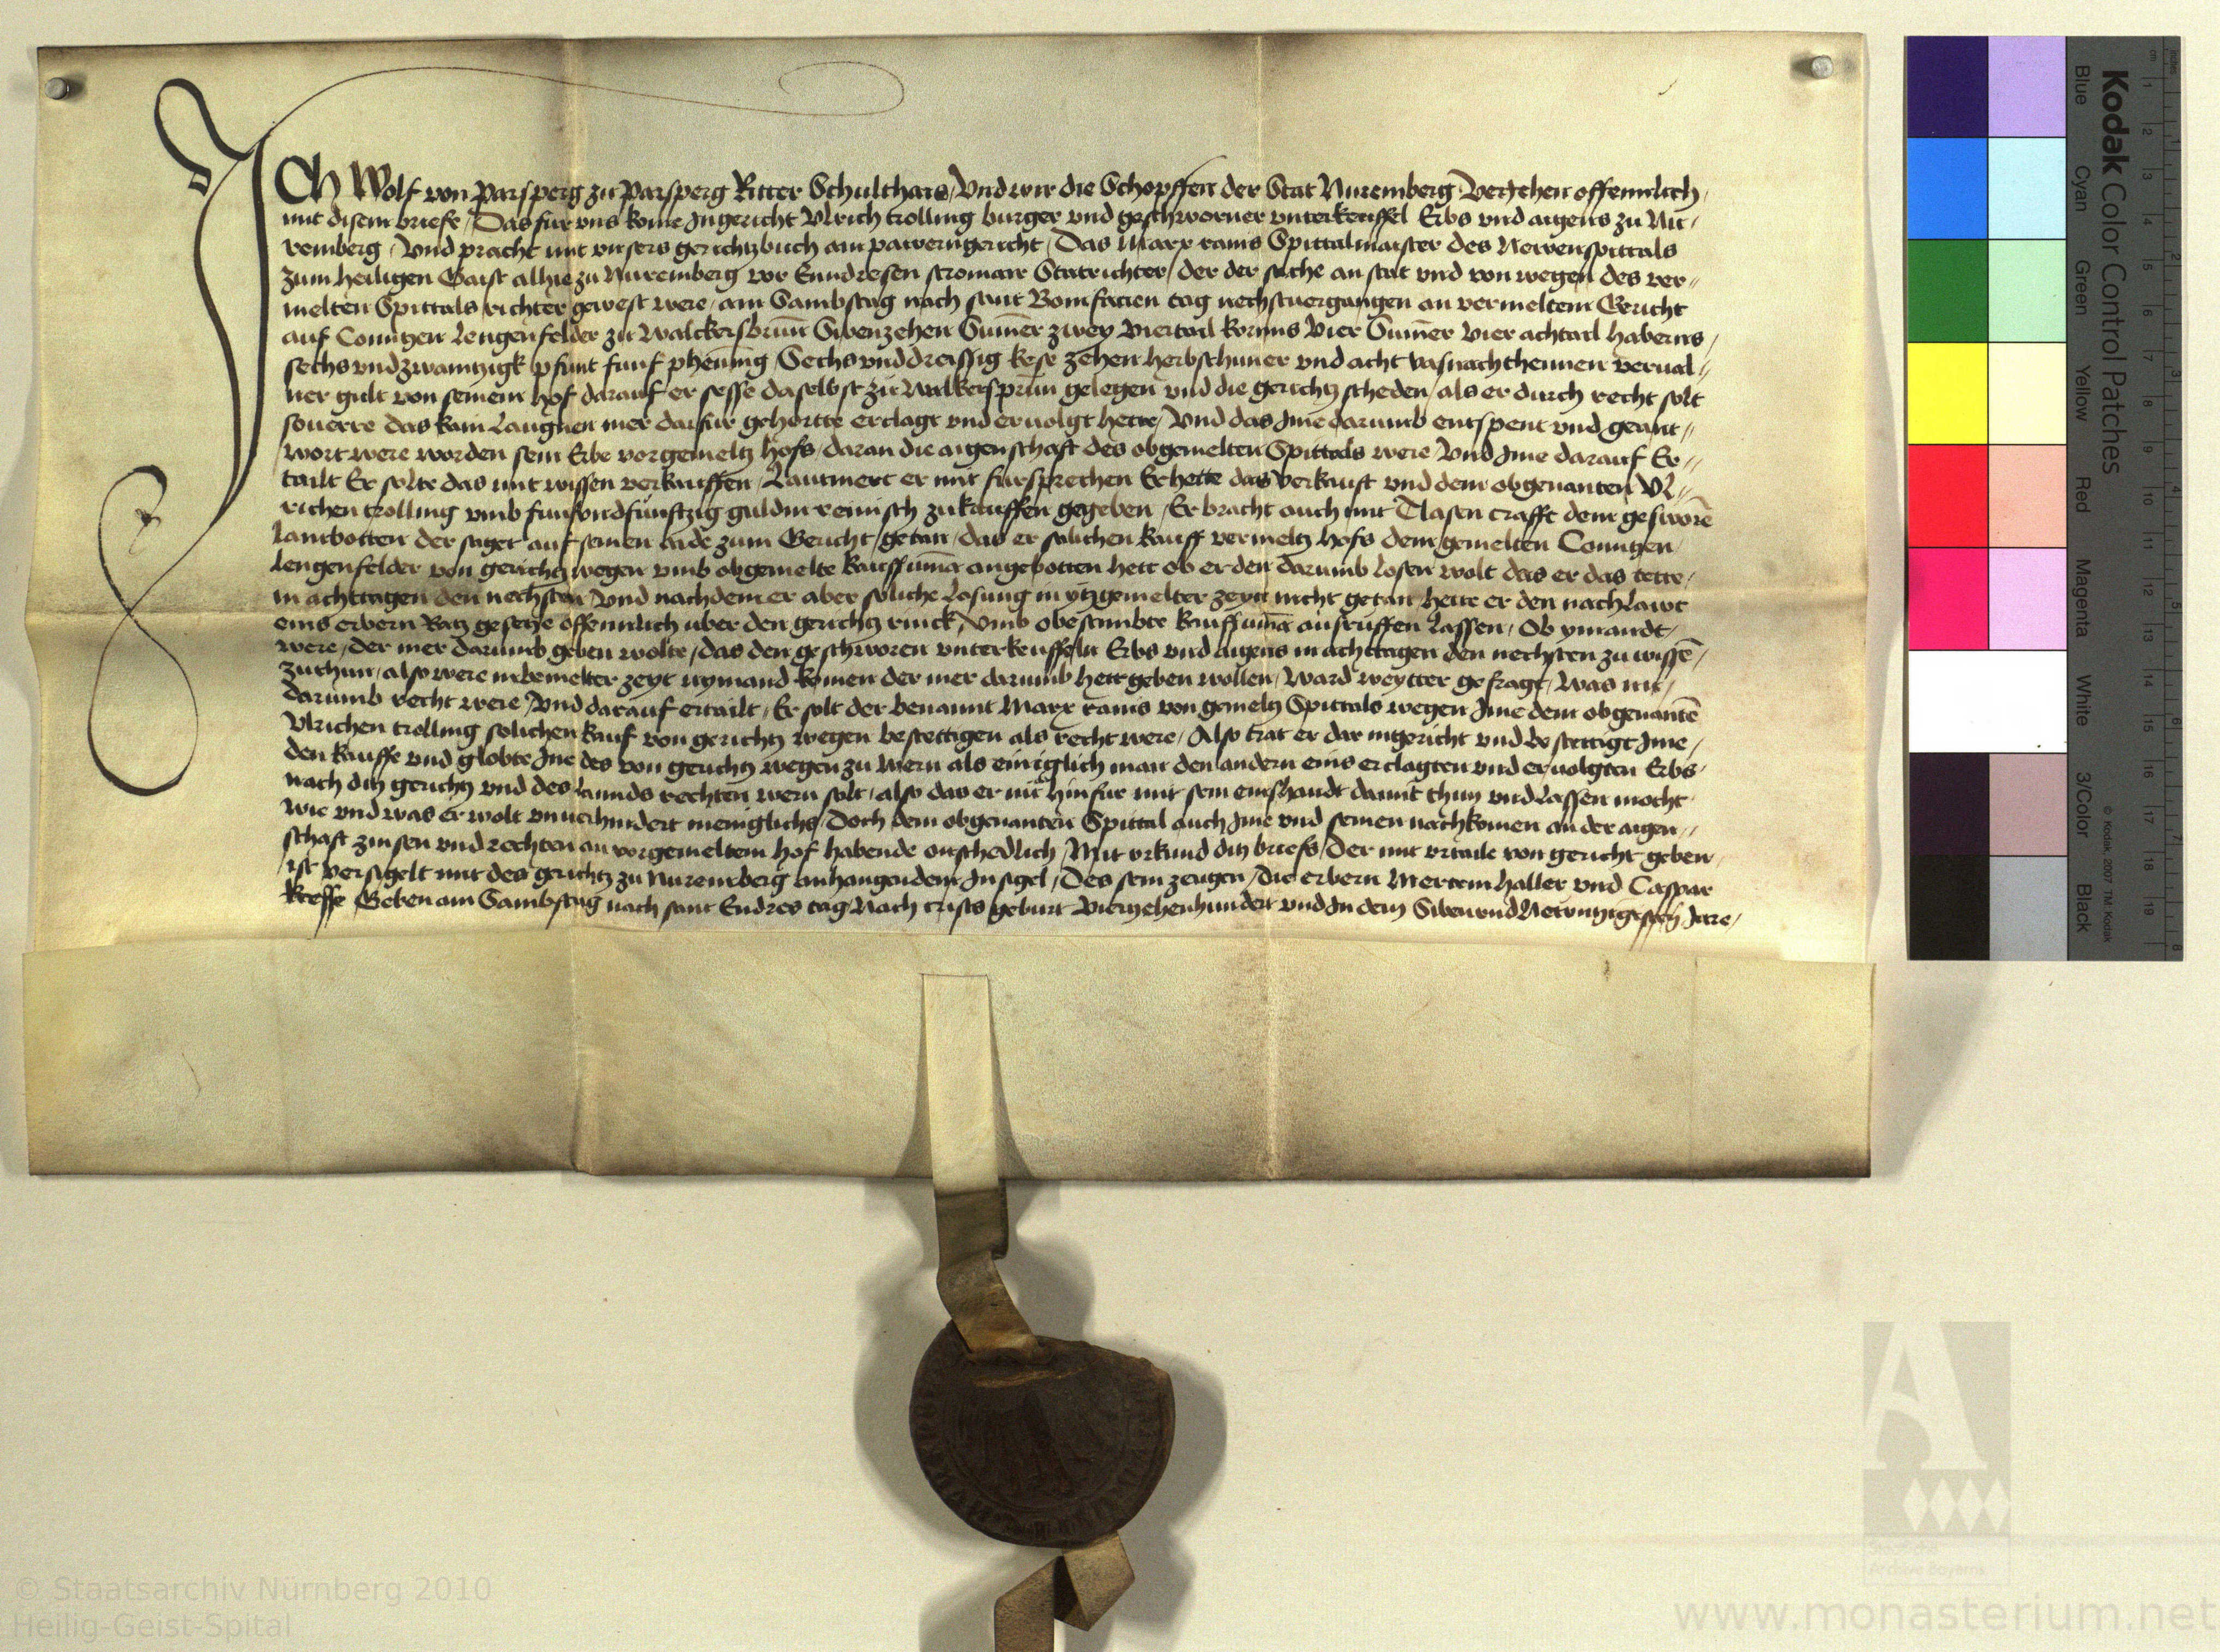 Ich Wolf von Parsperg zu Parsperg Ritter Schulthais, Vnd wir die Schopffen der Stat Nuremberg Veriehen offennlich,
mit disem briefe, Das fur vns kome Jngericht Vlrich trolling burger vnd geschworner vnterkeuffel Erbs vnd aigens zu Nu,
remberg, Vnd pracht mit vnsers gerichtzbuch am pawerngericht, Das Marx ranis Spittalmaister des Newenspittals
zum heiligen Gaist alhie zu Nuremberg vor Enndresen stromair Statrichter, der der sache an stat vnd von wegen des ver,,
melten Spittals richter gewest were, am Sambstag nach sant Bonifacien tag nechstuergangen an vermeltem Gericht
auf Conntzen Lengenfelder zu Walckersbrun̄ Sibenzehen Sum̄er zwey viertail korns Vier Sum̄er vier achtail haberns,
sechsvndzwaintzigk pfunt funf phen̄ing Sechsvnddreissig kese zehen herbsthuner vnd acht vasnachthennen verual,,
ner gult von seinem hof darauf er sesse daselbst zu Walkersprun̄ gelegen vnd die gerichtz scheden, als er durch recht solt
souerre das kain laugnen mer darfur gehortte erclagt vnd eruolgt hette, Vnd das Jme darumb entspent vnd geant,,
wort were worden sein Erbe vorgemeltz hofs, daran die aigenschaft des obgemelten Spittals were Vnd Jme darauf Er,,
tailt Er solte das mit wissen verkauffen, Lautmert er mit fursprechen Er hette das verkauft vnd dem obgenanten Vl,,
richen trolling vmb funfvndfunftzig guldin reinisch zukauffen gegeben, Er bracht auch mit Clasen crafft dem gesworē
lantbotten der saget auf seinen aide zum Gericht getan, das er solichen kauff vermeltz hofs dem gemelten Conntzen
Lengenfelder von gerichtz wegen vmb obgemelte kauffsum̄a angebotten hett ob er den darumb losen wolt das er das tette,
in achttagen den nechsten Vnd nachdem er aber soliche losung in ytzgemelter zeyt nicht getan, hette er den nachlawt
eins erbern Ratz gesetze offennlich vber den gerichtz rinck, vmb obestimbte kauffsum̄a ausruffen lassen, Ob ymandt,
were, der mer darumb geben wolte, das den geschworen vnterkeuffeln Erbs vnd aigens in achttagen den nechsten zu wissē,
zuthun, also were inbemelter zeyt nymand komen der mer darumb hett geben wollen, Ward weytter gefragt, was nu,
darumb recht were, Vnd darauf ertailt, Er solt der benannt Marx ranis von gemeltz Spittals wegen Jme dem obgenantē
Vlrichen trolling solichen kauf von gerichtz wegen bestettigen als recht were, Also trat er dar ingericht vnd bestettigt Jme,
den kauffe vnd globte Jne des von gerichtz wegen zu wern als einiglich man den andern eins erclagten vnd eruolgten Erbs,
nach ditz gerichtz vnd des lannds rechten wern solt, also das er nu hinfur mit sein einshandt damit thun vnd lassen mocht
wie vnd was er wolt vnuerhindert meniglichs, Doch dem obgenanten Spittal auch Jme vnd seinen nachkomen an der aigen,,
schaft zinsen vnd rechten an vorgemeltem hof habende onschedlich, Mit vrkund ditz briefs, der mit vrtaile von gericht geben,
ist versigelt mit des gerichtz zu Nuremberg anhangendem Jnsigel, Des sein zeugen, die erbern Mertein haller vnd Caspar
kresse Geben am Sambstag nach sant Endres tag Nach crists geburt Vierzehenhundert vnd Jn dem Siben vnd Newntzigesten Jare,
Kodak Color Control Patches
Blue Cyan Green Yellow Red Magenta White 3/Color Black
© Kodak, 2007 TM: Kodak
© Staatsarchiv Nürnberg 2010
Heilig-Geist-Spital
www.monasterium.net